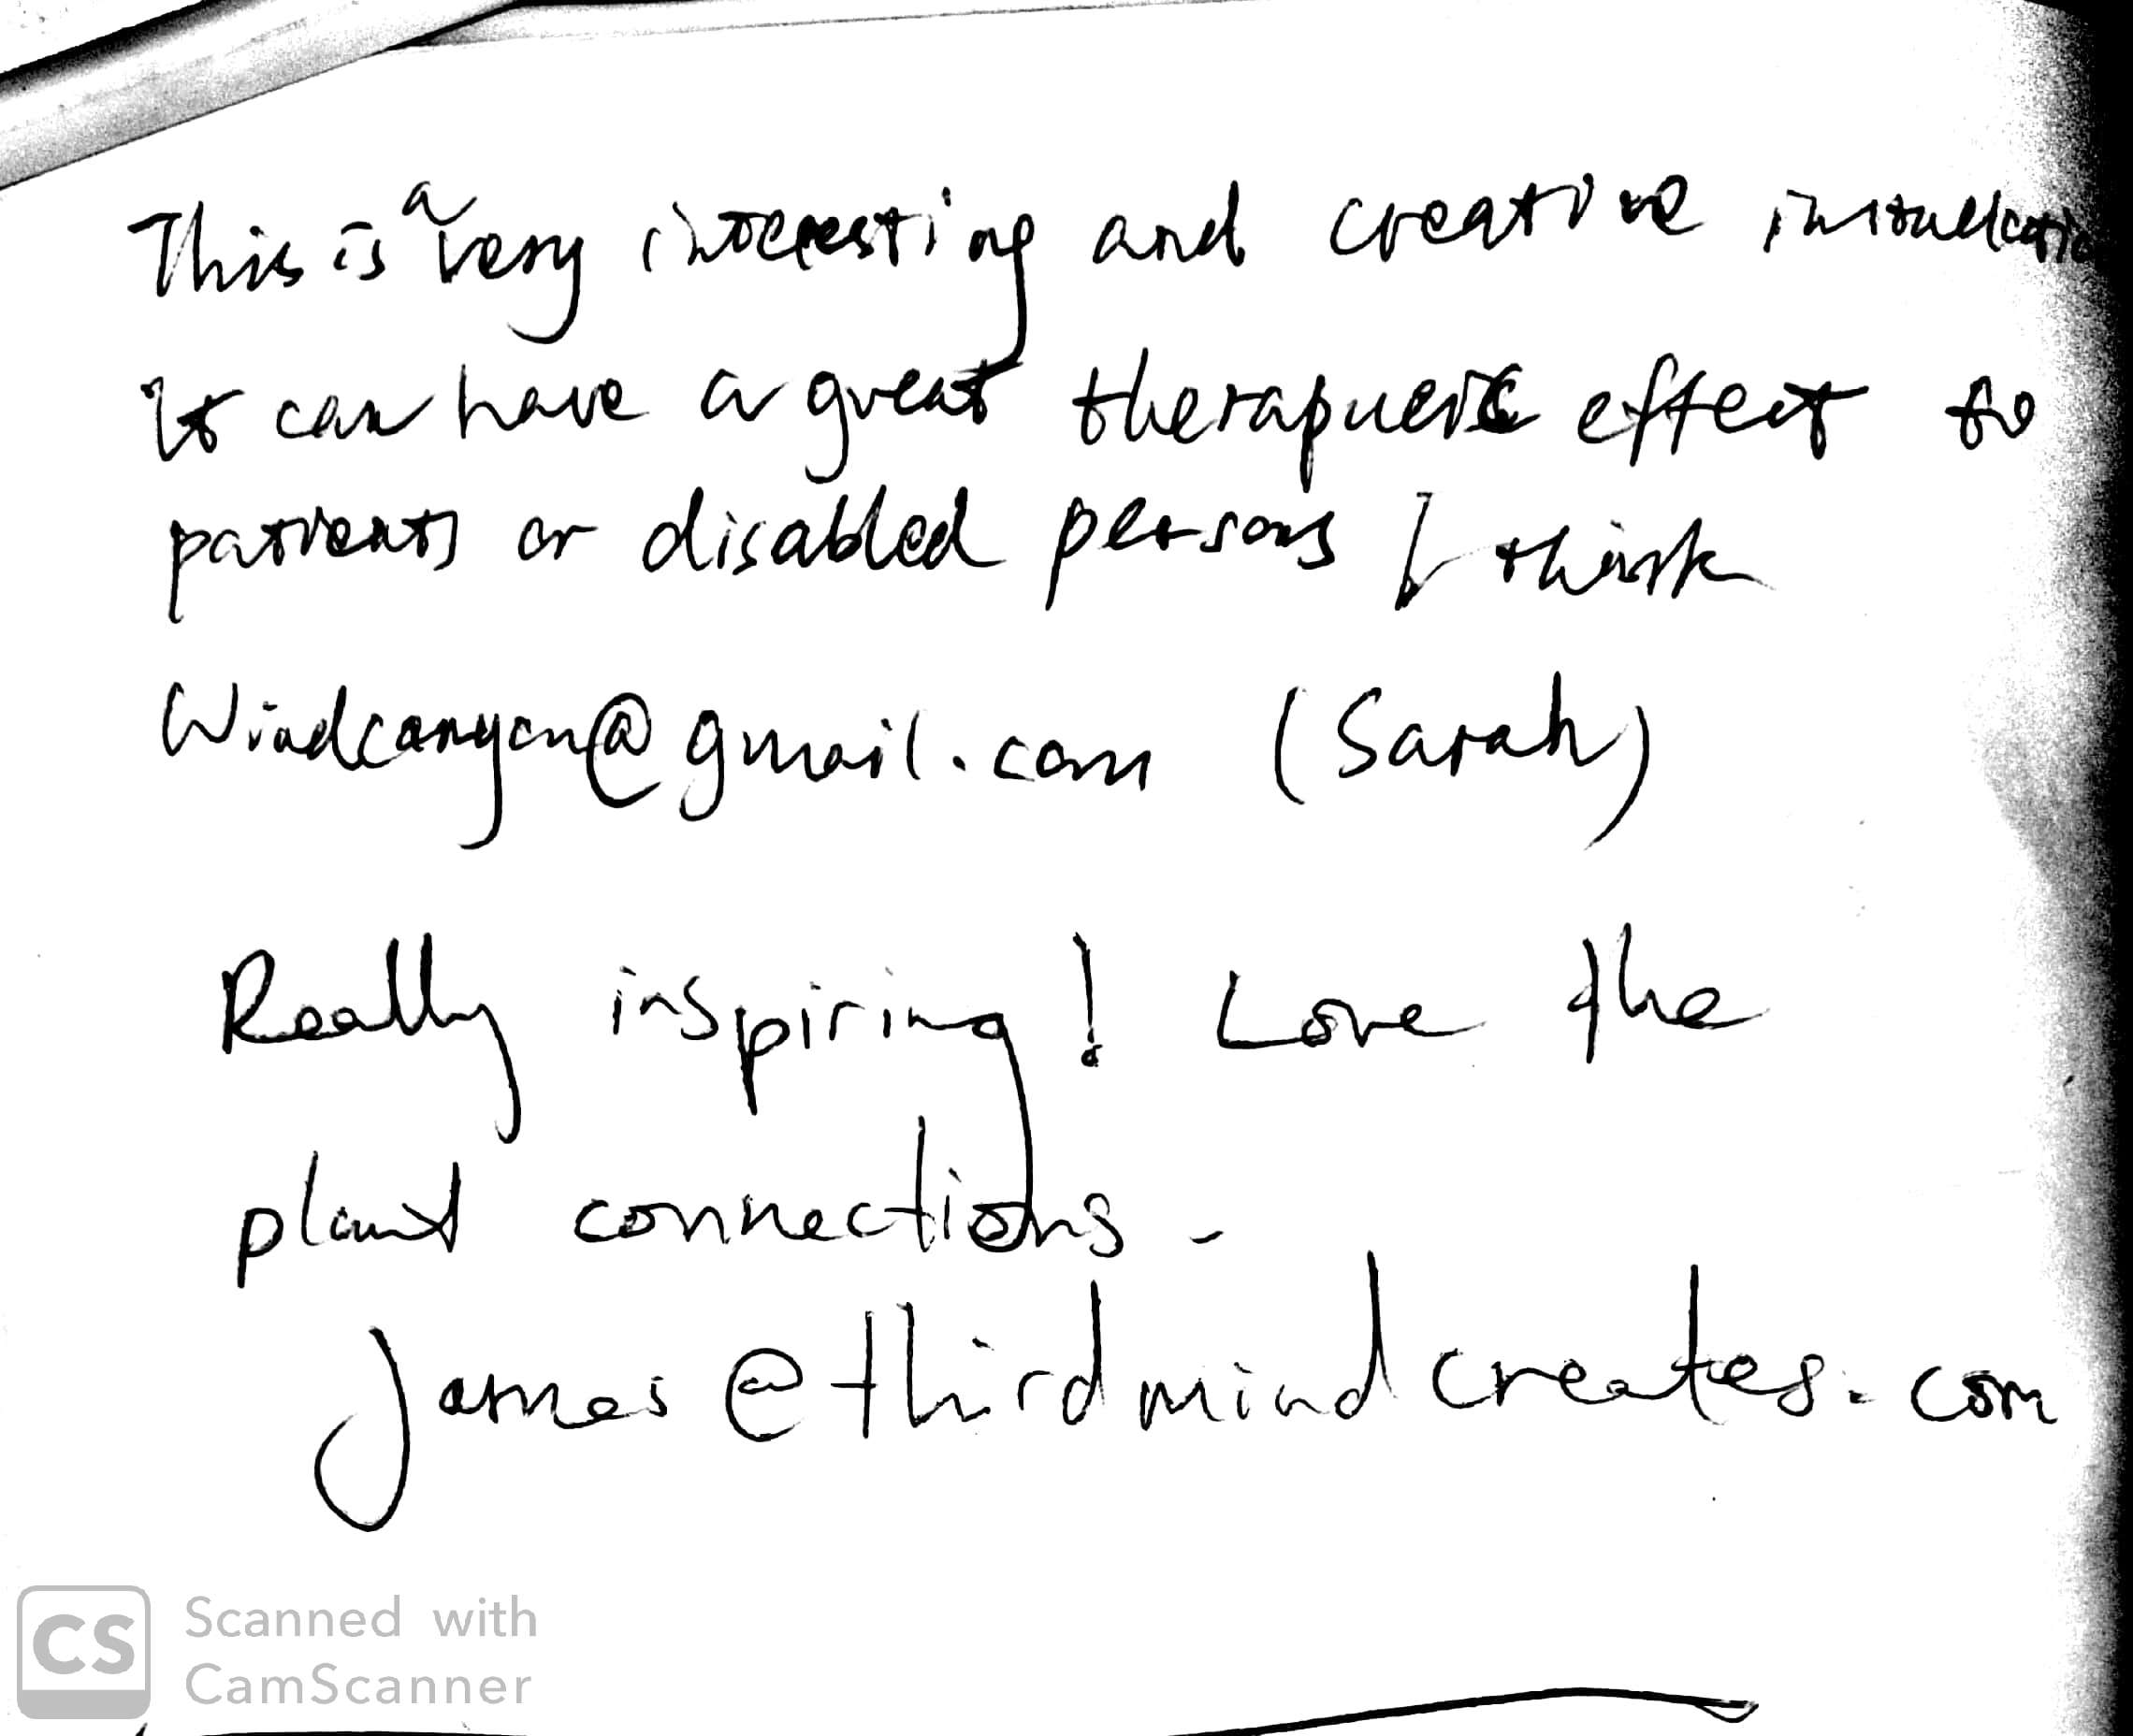 This is a very interesting and creative installatio
it can have a great therapueic effect to
patients or disabled persons I think
Windcanyon@gmail.com (Sarah)
Really inspiring! Love the
plant connections.
James@thirdmindcreates.com
CS
Scanned with
CamScanner